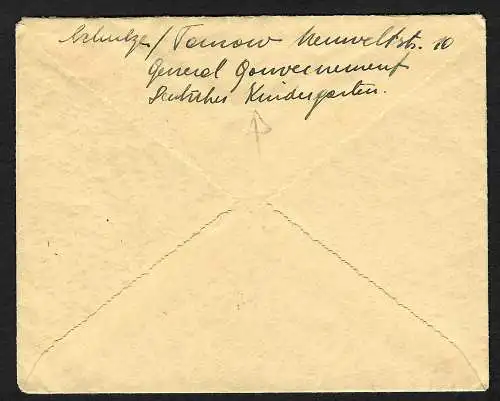 Schulze / Tarnow Neuweltstr. 10
General Gouvernement
Deutscher Kindergarten.